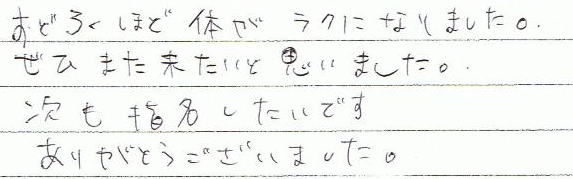 おどろくほど体がラクになりました。
ぜひまた来たいと思いました。
次も指名したいです
ありがとうございました。